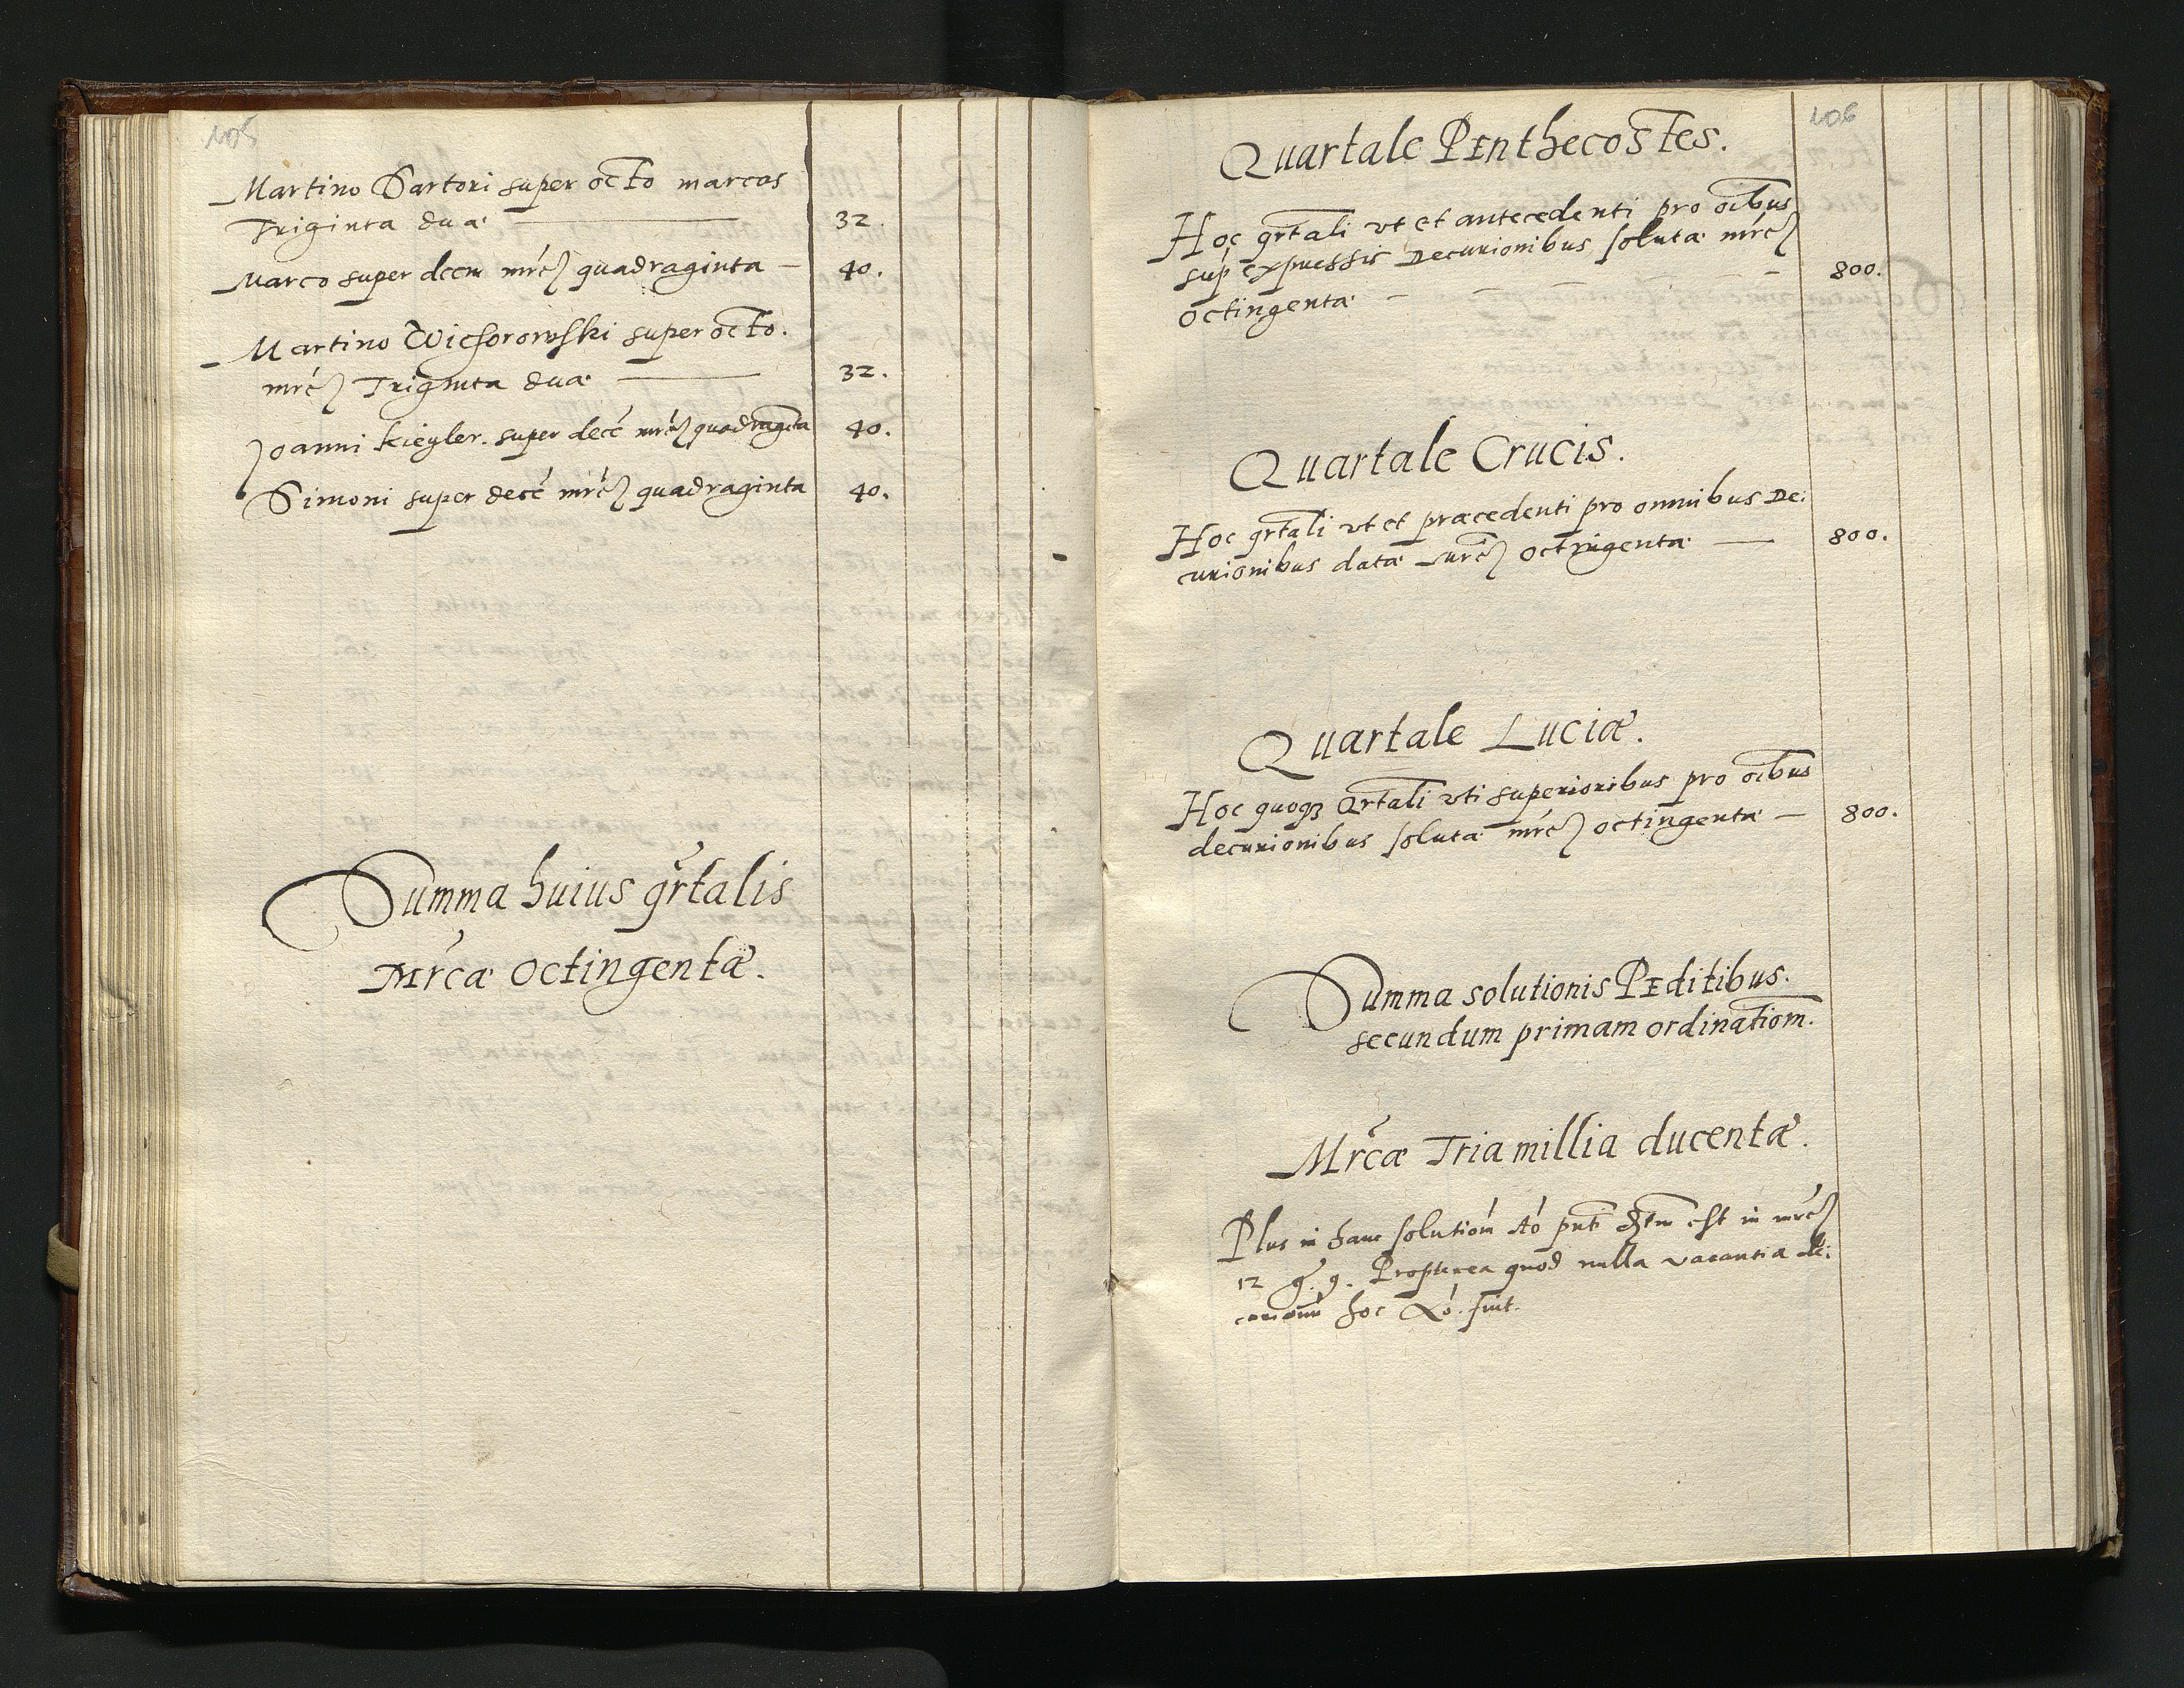 105
Martino Sartori super octo marcas
Triginta duæ — 32.
Marco super decem mrc̃ quadraginta — 40.
Martino Wichorowski super octo.
mrc̃ Triginta duæ — 32.
Joanni Kiegler. super decẽ mrc̃ quadraginta 40.
Simoni super decẽ mrc̃ quadraginta 40.
Summa huius qr̃talis
Mrc̃æ Octingentæ.
106
Quartale PEnthecosTes.
Hoc qr̃tali vt et antecedenti pro oĩbus
sup expressis Decurionibus solutæ mrc̃
octingentæ — 800.
Quartale Crucis.
Hoc qr̃tali vt et præcedenti pro omnibus De:
curionibus datæ mrc̃ octingentæ — 800.
Quartale Luciæ.
Hoc quoqʒ Qr̃tali vti superioribus pro oĩbus
decurionibus solutæ mrc̃ octingentæ — 800.
Summa solutionis PEditibus.
secundum primam ordinatiom̃.
Mrc̃æ Tria millia ducentæ.
Plus in hanc solutiom̃ Aõ est in mrc̃
12 g. 9. Propterea quod nulla vacantia de:
curionũ hoc Qõ. fuit.